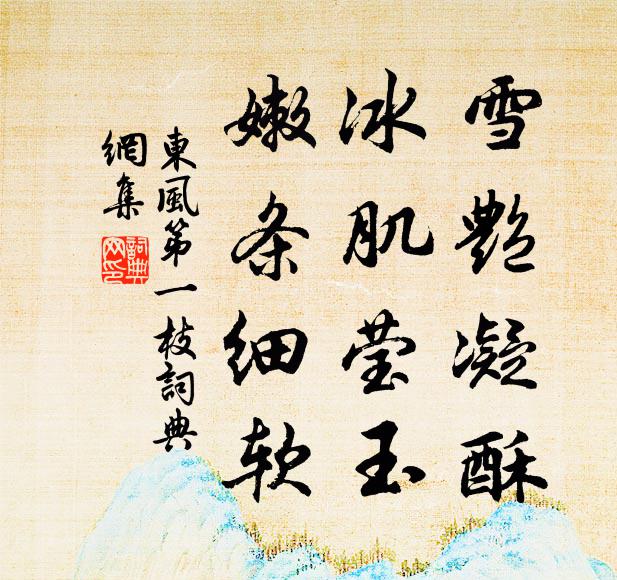 雪艷凝酥
冰肌莹玉
嫩条细软
東風第一枝詞典
網集
詞典网印